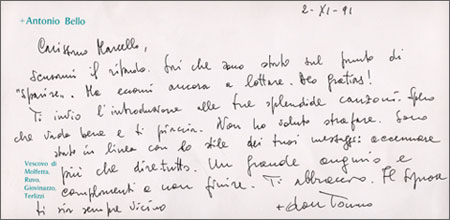 +Antonio Bello
2-XI-91
Carissimo Marcello,
scusami il ritardo. Sai che sono stato sul punto di
"sparire". Ma eccomi ancora a lottare. Deo gratias!
Ti invio l'introduzione alle tue splendide canzoni. Spero
che vada bene e ti piaccia. Non ho voluto strafare. Sono
stato in linea con lo stile dei tuoi messaggi: accennare
più che dire tutto. Un grande augurio e
complimenti a non finire. Ti abbraccio. Il Signore
ti sia sempre vicino
+don Tonino
Vescovo di
Molfetta,
Ruvo,
Giovinazzo,
Terlizzi